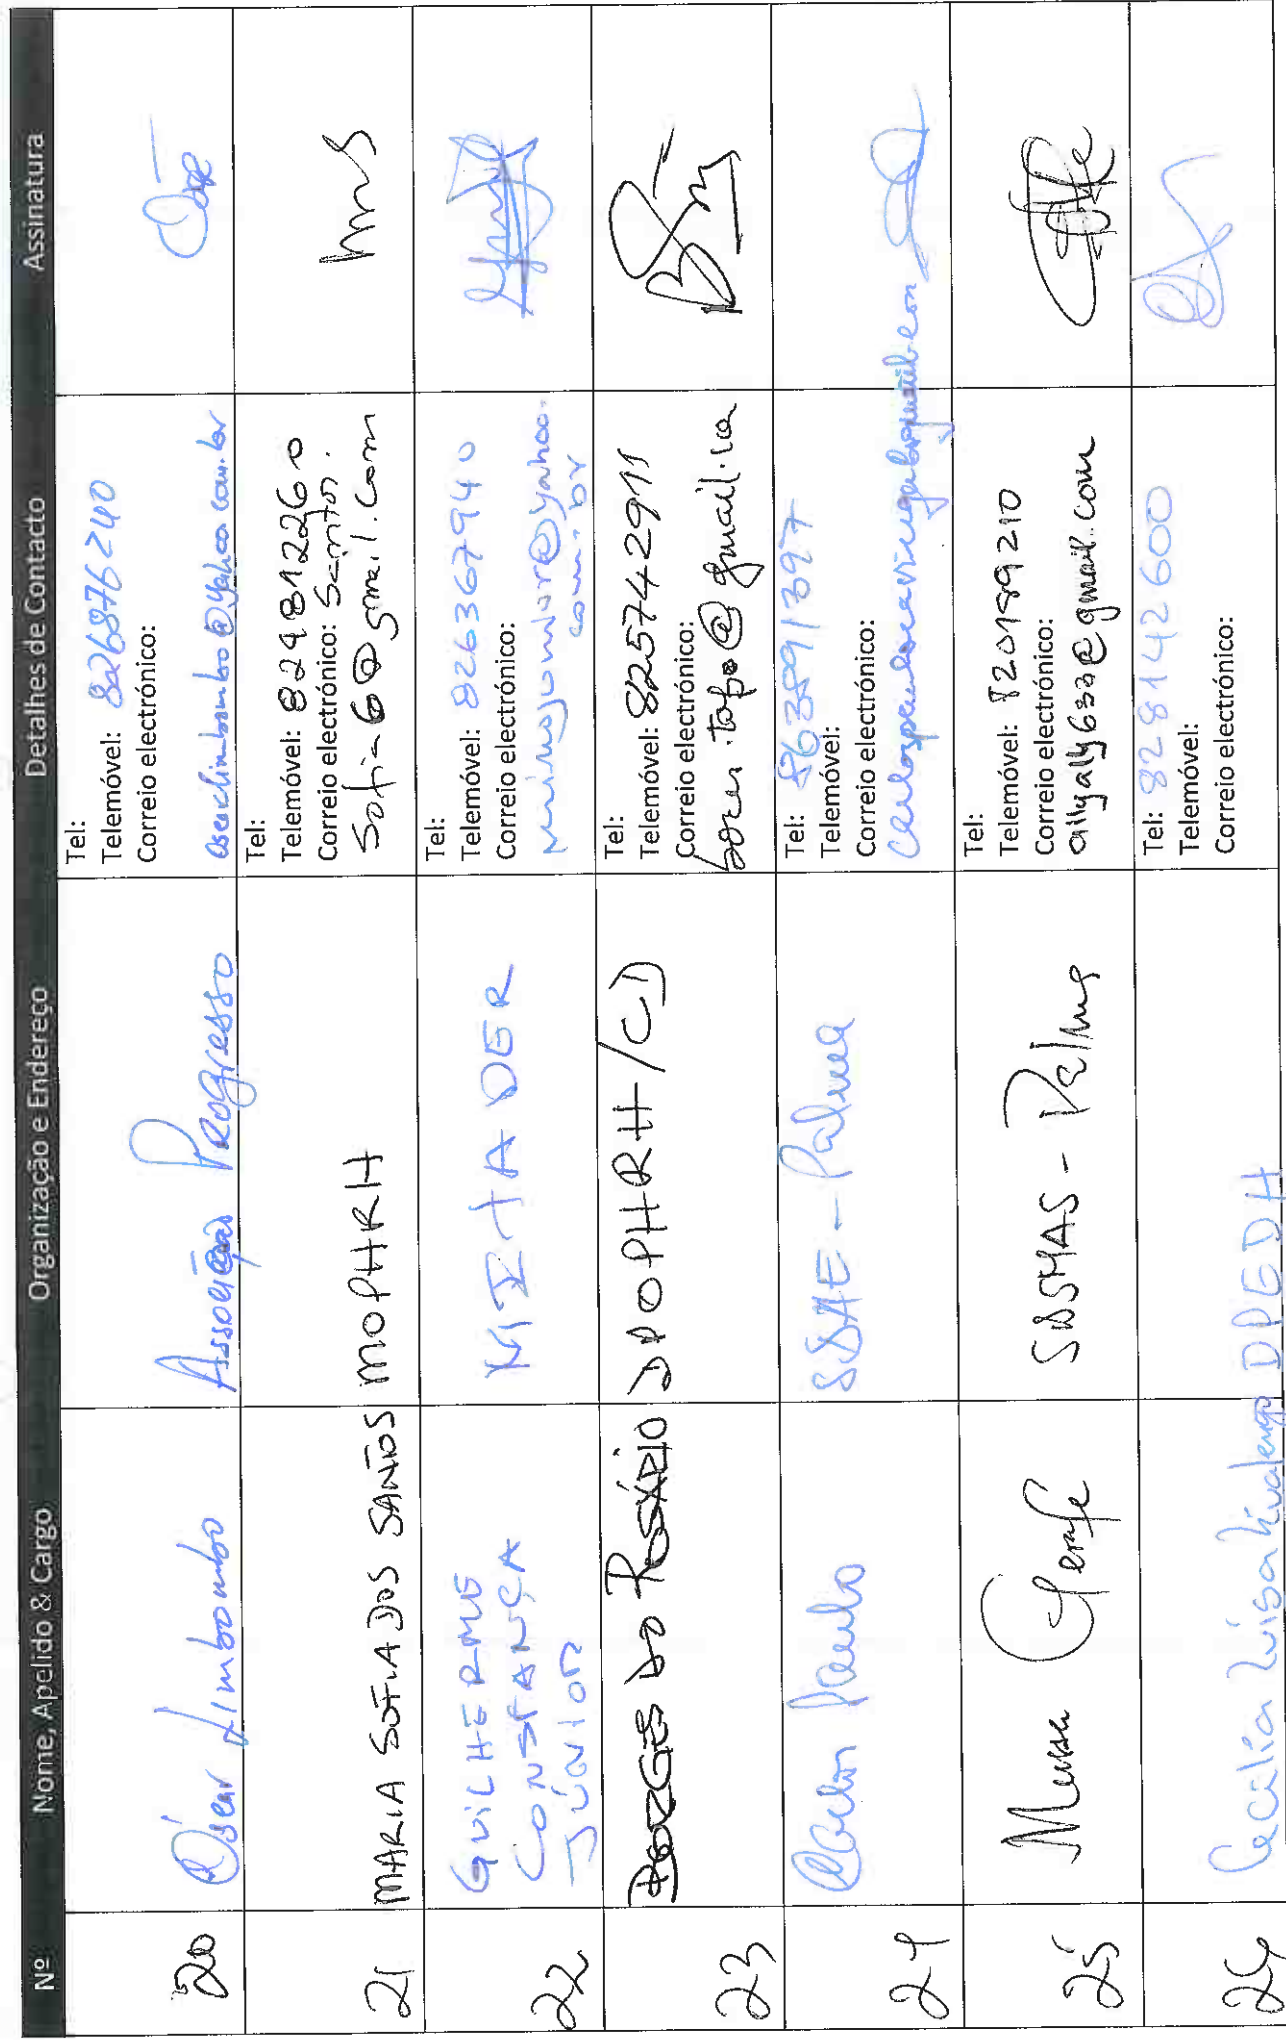 Nº Nome, Apelido & Cargo Organização e Endereço Detalhes de Contacto Assinatura
20
Óscar Limbombo
Associação Progresso
Tel:
Telemóvel: 826876240
Correio electrónico:
21
MARIA SOFIA DOS SANTOS
MOPHRH
Tel:
Telemóvel: 824812260
Correio electrónico: Santos.
Sofia60@gmail.com
22
GUILHERME
CONSTANÇA
JÚNIOR
MITADER
Tel:
Telemóvel: 826367940
Correio electrónico:
mimojunior@yahoo.
com.br
23
BORGES DO ROSÁRIO
DPOPHRH/CD
Tel:
Telemóvel: 825742911
Correio electrónico:
24
Carlos Paulo
SDAE - Palma
Tel: 863891397
Telemóvel:
Correio electrónico:
25
Mussa
SDSMAS - Palma
Tel:
Telemóvel: 820189210
Correio electrónico:
allyally633@gmail.com
Cecilia Luisa
DPEDH
Tel: 828142600
Telemóvel:
Correio electrónico: